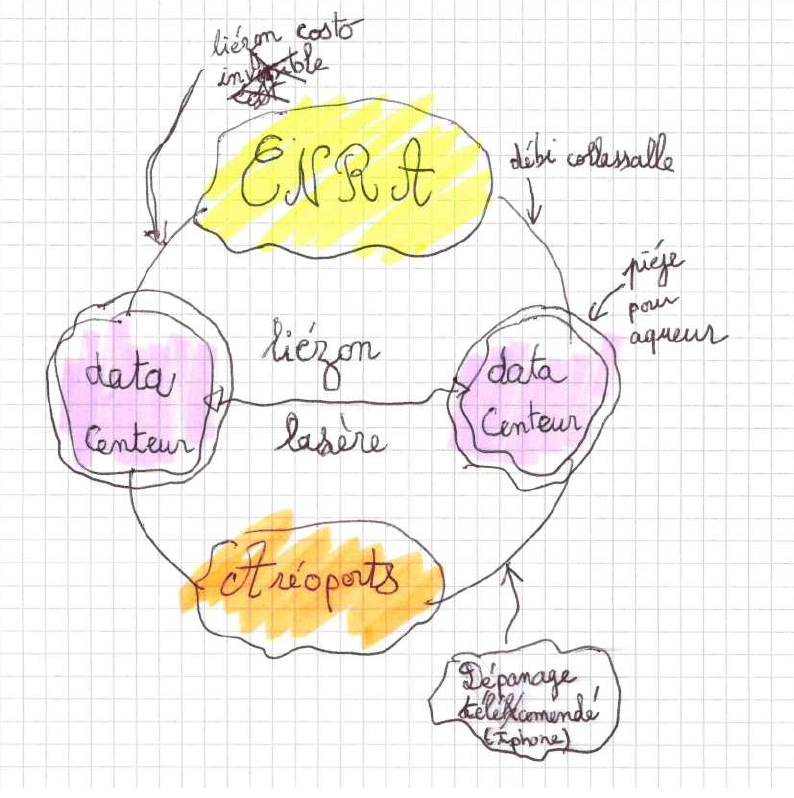 liézon costo
invisible
ENRA
débi collassalle
piéje
pour
aqueur
data
Centeur
liézon
lasère
data
Centeur
Aréoports
Dépanage
télékomendé
(Iphone)